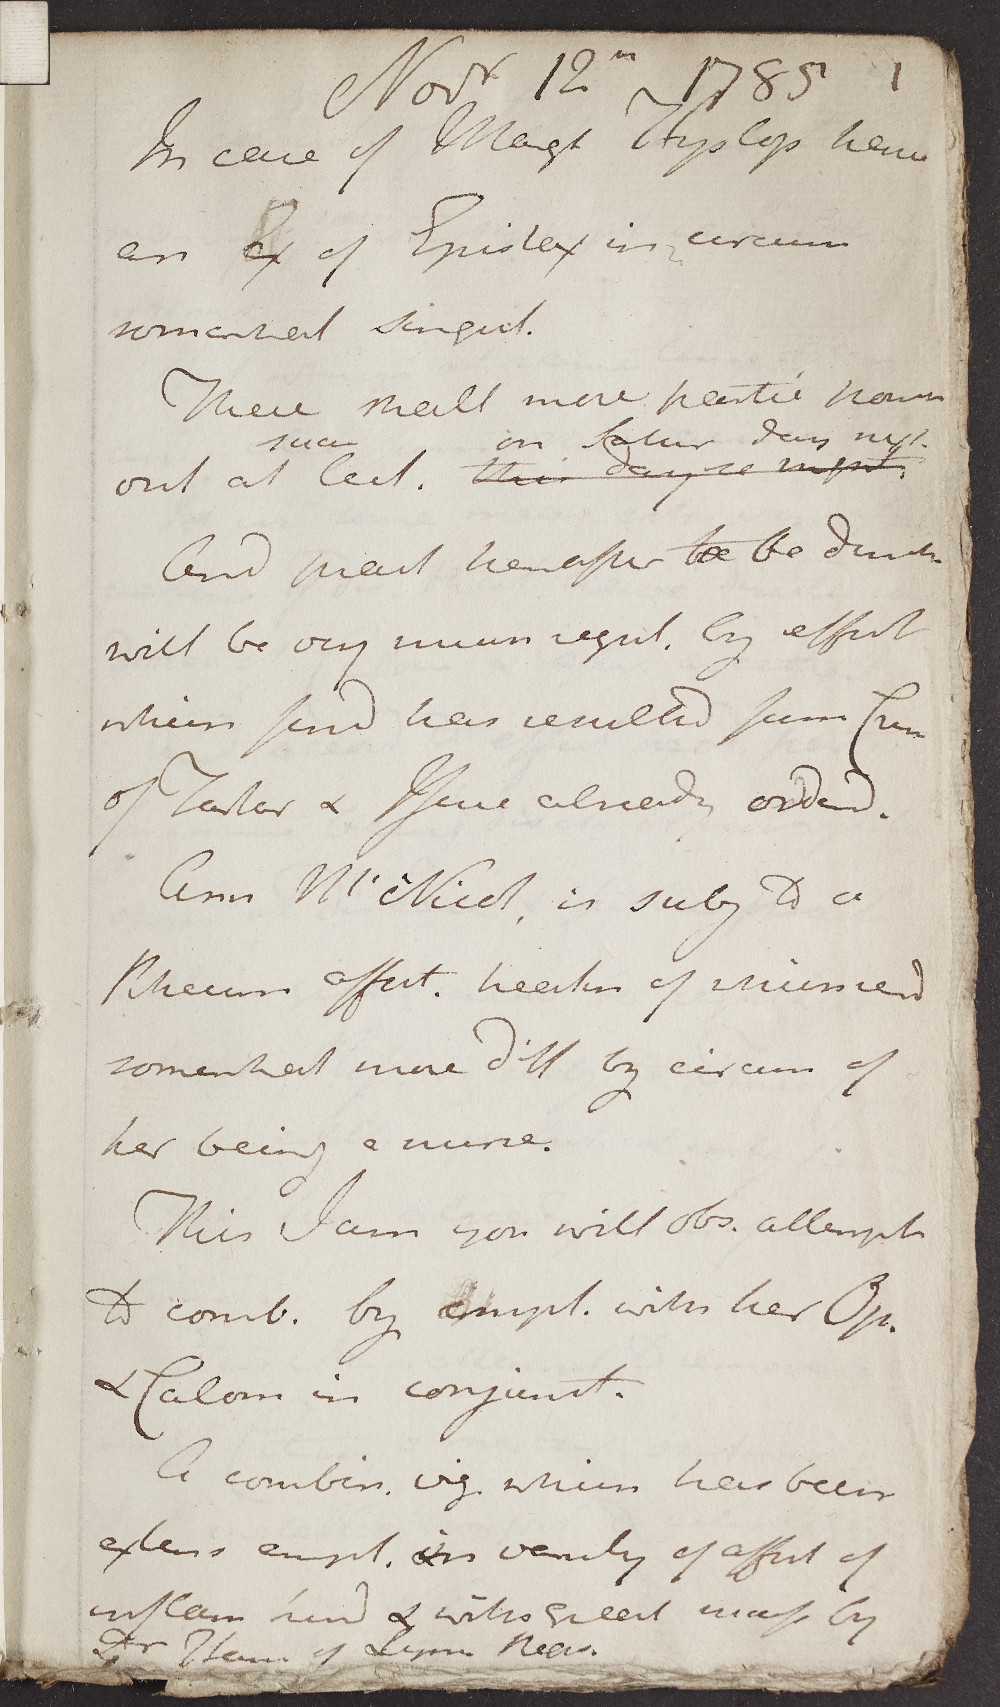 Novr 12th 1785 1
In case of Margt Hyslop have
an Ex of Epistax in circum
somewhat singul.
These shall more partic. point
out at lect. such on Satur day nyt.
this day se night.
And pract hereafter to be
will be very much regul. by effect
which find has resulted from Crem
of Tartar & Issue already orderd.
Ann McNicol, is subj to a
Rheum affect. treatm of which rend
somewhat more diff by circum of
her being a nurse.
This I am you will obs. attempt
to comb. by empl. with her Op.
& Calom in conjunct.
A combin. vig. which has been
extens empl. in variety of affect of
inflam kind & with great succ by
Dr Ham of Lynn Regis.